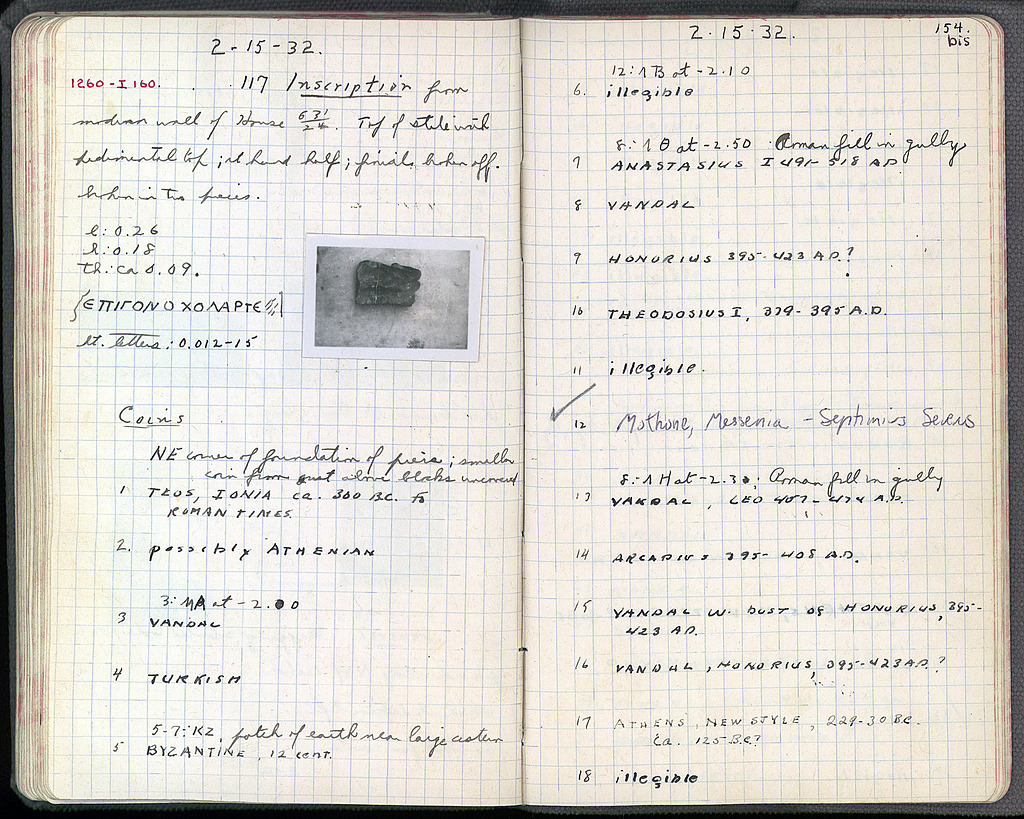 2-15-32.
1260-I 160. 117 Inscription from
modern wall of House 631/24. Top of stele with
pedimental top; rt hand half; finials broken off.
broken in two pieces.
l: 0.26
h: 0.18
th: ca 0.09.
ΕΠΙΓΟΝΟΧΟΛΑΡΓΕ
ht. letters: 0.012-15
Coins
NE corner of foundation of piers; smaller
coin from just above blocks uncovered
1 TEOS, IONIA ca. 300 B.C. to
ROMAN TIMES.
2. possibly ATHENIAN
3: at -2.00
3 VANDAL
4 TURKISH
5-7: KZ, patch of earth near large cistern
5 BYZANTINE, 12 cent.
2.15.32. 154.
bis
12: ΛB at -2.10
6. illegible
8: Λ Θ at -2.50 Roman fill in gully
7 ANASTASIUS I 491-518 AD
8 VANDAL
9 HONORIUS 395-423 A.D.?
10 THEODOSIUS I, 379-395 A.D.
11 illegible.
12 Mothone, Messenia - Septimius Severus
8: Λ H at -2.30; Roman fill in gully
13 VANDAL, LEO 457-474 A.D.
14 ARCADIUS 395-408 A.D.
15 VANDAL W. BUST OF HONORIUS, 395-
423 AD.
16 VANDAL, HONORIUS, 395-423 A.D.?
17 ATHENS, NEW STYLE, 229-30 BC.
Ca. 125 B.C?
18 illegible